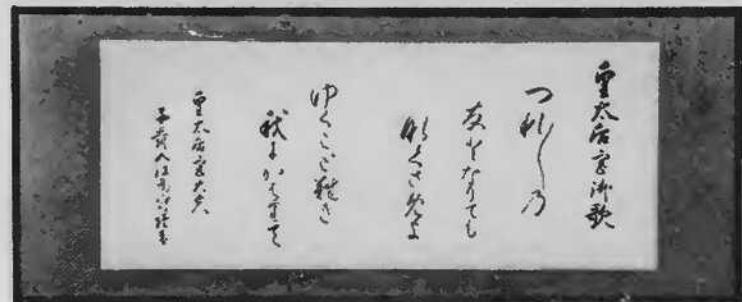 皇太后宮御歌
つれ〳〵の
友となりても
なくさめよ
ゆくこと難き
我にかはりて
皇太后宮大夫
子爵入江為守謹書